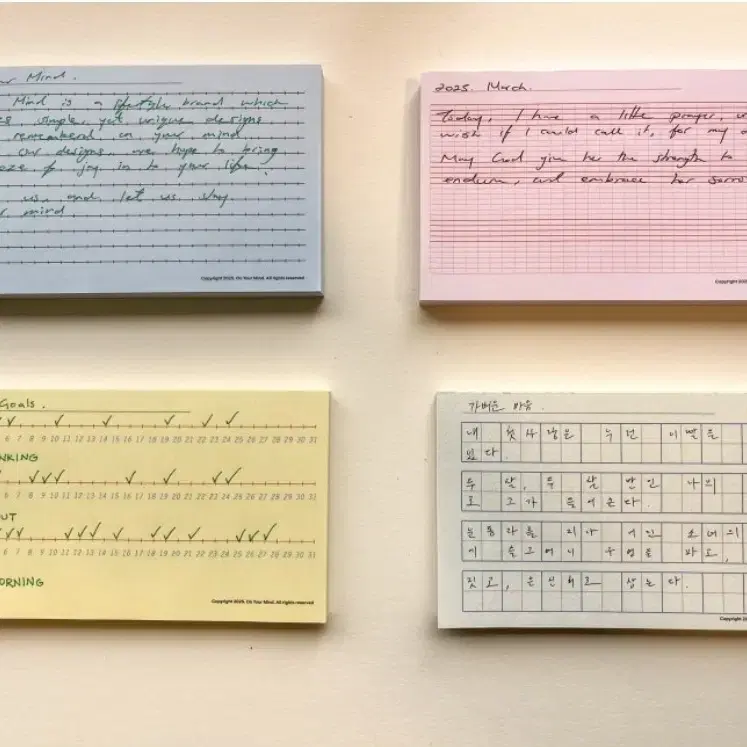 ur Mind.
Mind is a lifestyle brand which
simple, yet unique designs
remembered on your mind.
our designs, we hope to bring
joy in to your life.
us, and let us stay
mind.
Copyright 2025. On Your Mind. All rights reserved
2025. March.
Today, I have a little prayer, or
wish if I could call it, for my
May God give her the strength to
endure, and embrace her sorro
Copyright 202
Goals.
6 7 8 9 10 11 12 13 14 15 16 17 18 19 20 21 22 23 24 25 26 27 28 29 30 31
NKING
6 7 8 9 10 11 12 13 14 15 16 17 18 19 20 21 22 23 24 25 26 27 28 29 30 31
UT
6 7 8 9 10 11 12 13 14 15 16 17 18 19 20 21 22 23 24 25 26 27 28 29 30 31
ORNING
Copyright 2025. On Your Mind. All rights reserved
가벼운 마음.
내 첫사랑은 누런 이빨을
있다.
두 살, 두 살 반인 나의
로 그가 들어온다.
눈동자를 지나 여린 소녀의
이 바로,
짓고, 은신처로 삼는다.
Copyright